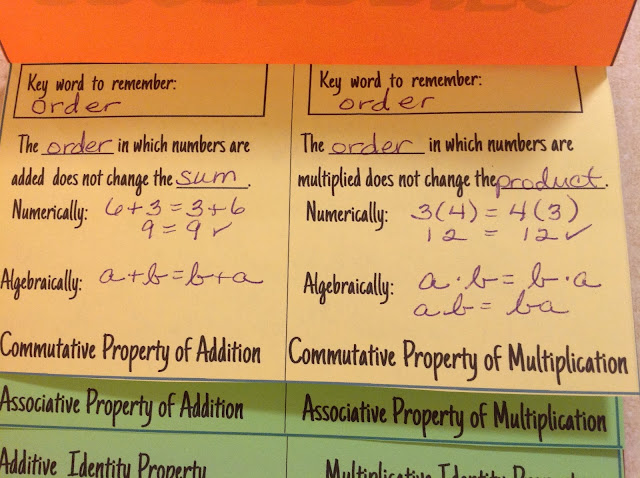 Key word to remember:
order
The order in which numbers are
added does not change the sum.
Numerically: 6+3=3+6
9=9✓
Algebraically: a+b=b+a
Commutative Property of Addition
Key word to remember:
order
The order in which numbers are
multiplied does not change the product.
Numerically: 3(4) = 4(3)
12 = 12✓
Algebraically: a·b=b·a
ab=ba
Commutative Property of Multiplication
Associative Property of Addition
Associative Property of Multiplication
Additive Identity Property
Multiplicative Identity